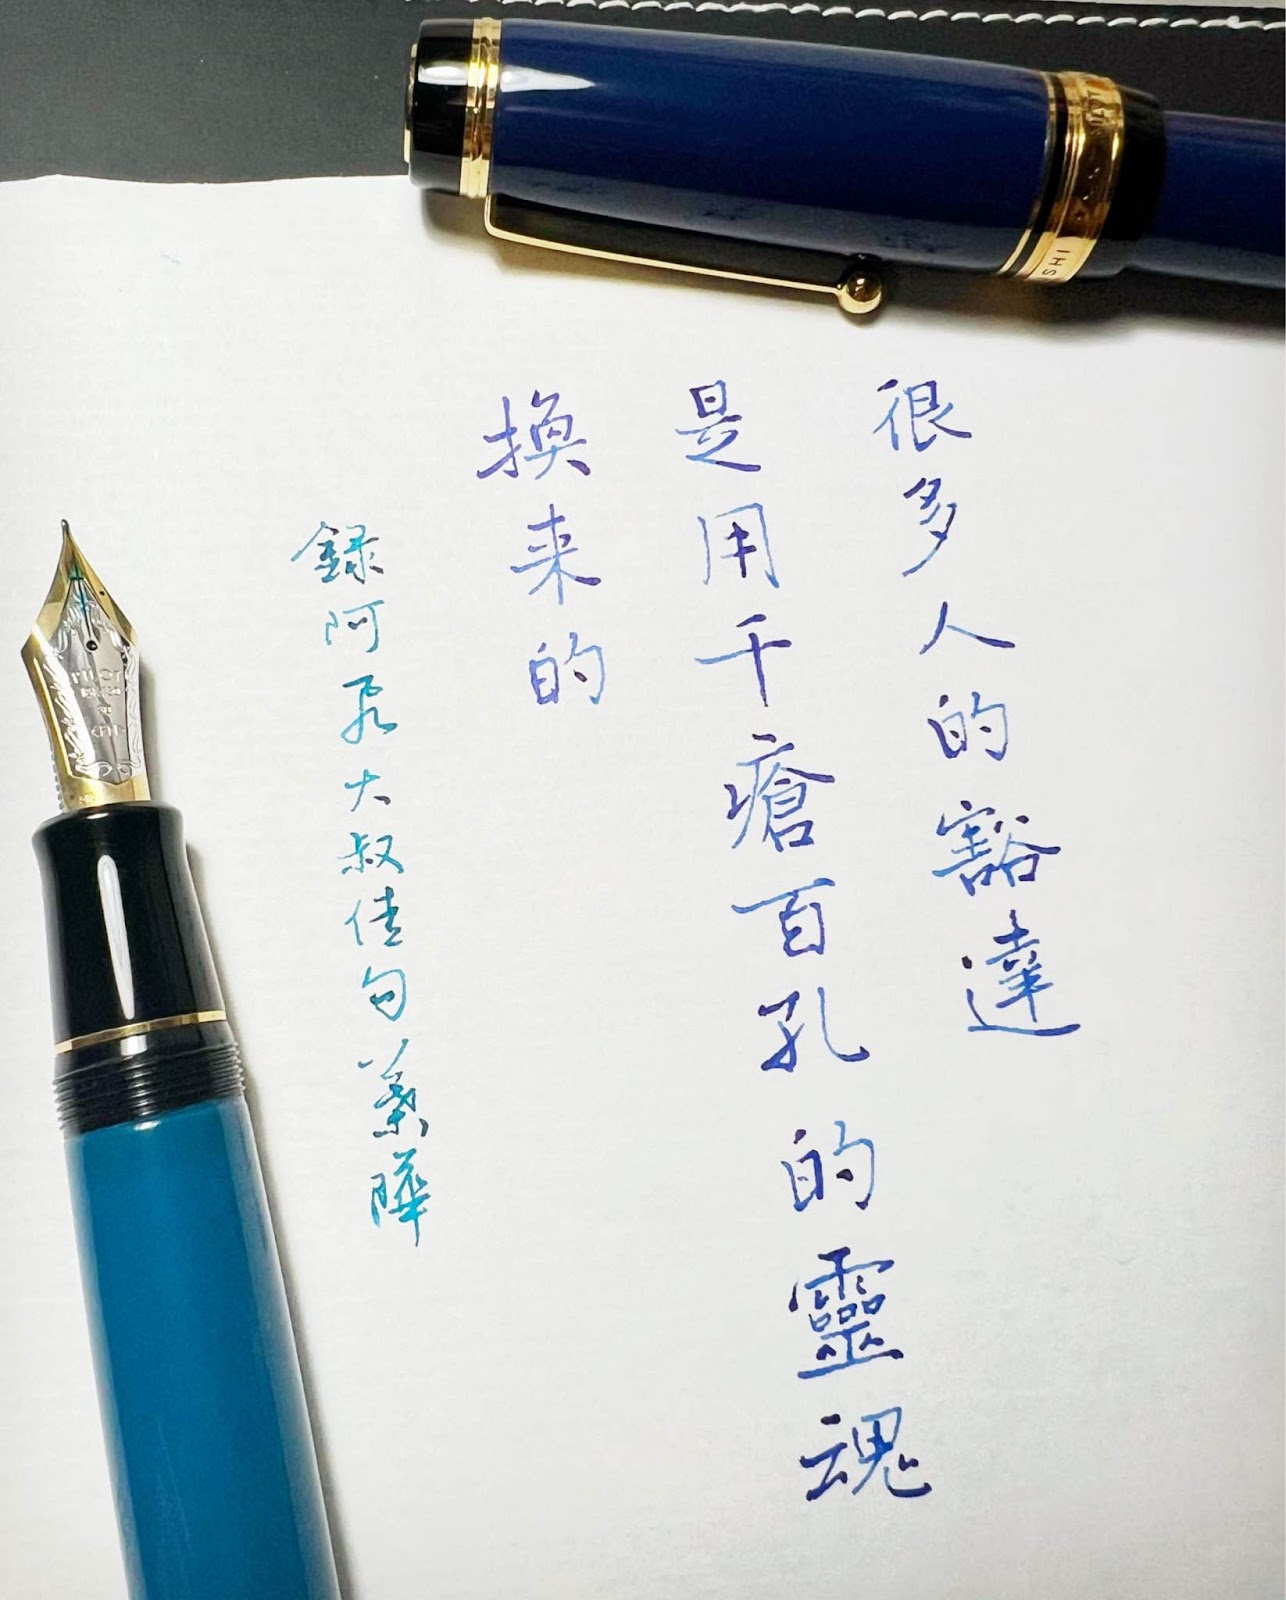 很多人的豁達
是用千瘡百孔的靈魂
換来的
錄阿飛大叔佳句業曄